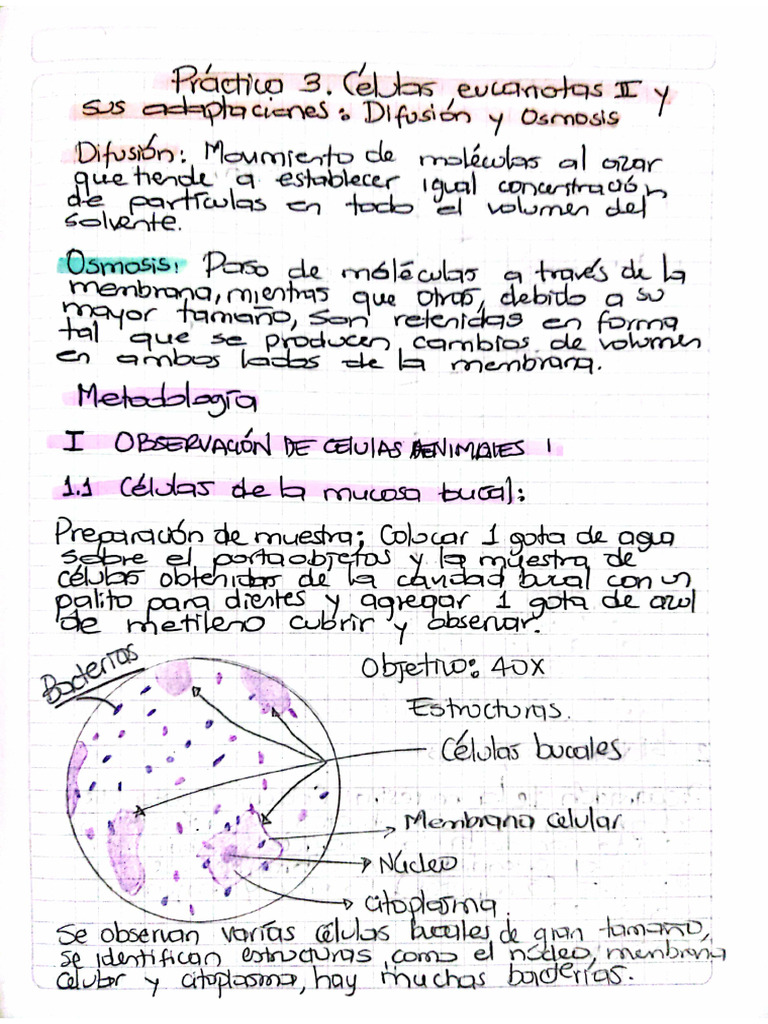 Práctico 3. Células eucariotas II y
sus adaptaciones: Difusión y Osmosis
Difusión: Movimiento de moléculas al azar
que tiende a establecer igual concentración
de partículas en todo el volumen del
solvente.
Osmosis: Paso de móléculas a través de la
membrana, mientras que otras, debido a su
mayor tamaño, son retenidas en forma
tal que se producen cambios de volumen
en ambos lados de la membrana.
Metodología
I OBSERVACIÓN DE CELULAS ANIMALES
1.1 Células de la mucosa bucal:
Preparación de muestra; Colocar 1 gota de agua
sobre el portaobjetos y la muestra de
células obtenidas de la cavidad bucal con un
palito para dientes y agregar 1 gota de azul
de metileno cubrir y observar.
Bacterias
Objetivo: 40X
Estructuras.
Células bucales
Membrana celular
Núcleo
citoplasma.
Se observan varías células bucales de gran tamaño,
se identifican estructuras como el núcleo, membrana
celular y citoplasma, hay muchas bacterias.